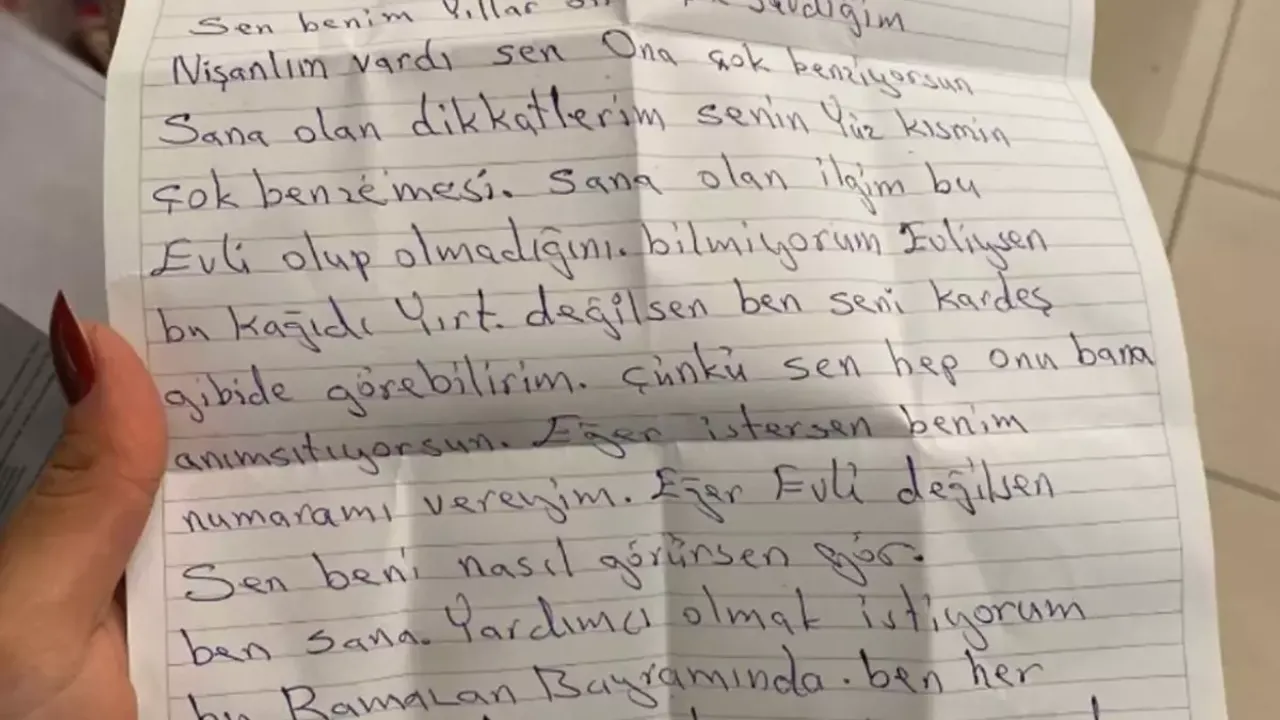 Sen benim Yıllar
Nişanlım vardı sen Ona çok benziyorsun
Sana olan dikkatlerim senin Yüz kısmin
çok benzemesi. Sana olan ilgim bu
Evli olup olmadığını. bilmiyorum Evliysen
bu kağıdı Yırt. değilsen ben seni kardeş
gibide görebilirim. çünkü sen hep onu bana
anımsıtıyorsun. Eğer istersen benim
numaramı vereyim. Eğer Evli değilsen
Sen beni nasıl görürsen gör.
ben sana. Yardımcı olmak istiyorum
bu Ramazan Bayramında. ben her